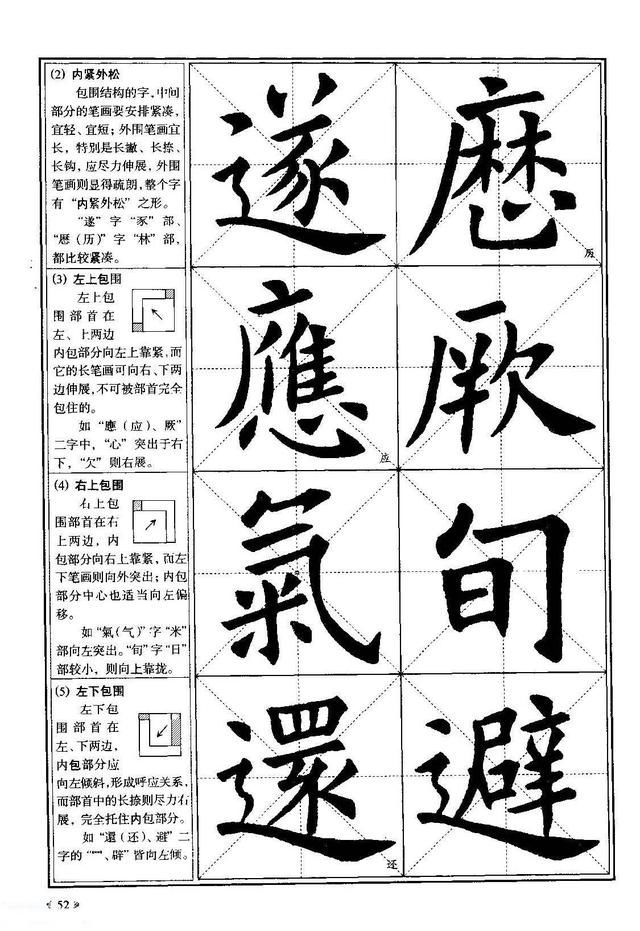 (2) 内紧外松
包围结构的字，中间
部分的笔画要安排紧凑，
宜轻、宜短；外围笔画宜
长，特别是长撇、长捺、
长钩，应尽力伸展，外围
笔画则显得疏朗，整个字
有“内紧外松”之形。
“遂”字“㒸”部、
“歷（历）”字“林”部，
都比较紧凑。
(3) 左上包围
左上包
围部首在
左、上两边
内包部分向左上靠紧，而
它的长笔画可向右、下两
边伸展，不可被部首完全
包住的。
如“應（应）、厥”
二字中，“心”突出于右
下，“欠”则右展。
(4) 右上包围
右上包
围部首在右
上两边，内
包部分向右上靠紧，而左
下笔画则向外突出；内包
部分中心也适当向左偏
移。
如“氣（气）”字“米”
部向左突出。“旬”字“日”
部较小，则向上靠拢。
(5) 左下包围
左下包
围部首在
左、下两边，
内包部分应
向左倾斜，形成呼应关系，
而部首中的长捺则尽力右
展，完全托住内包部分。
如“還（还）、避”二
字的“罒、辟”皆向左倾。
遂
歷
历
應
应
厥
氣
旬
還
还
避
52